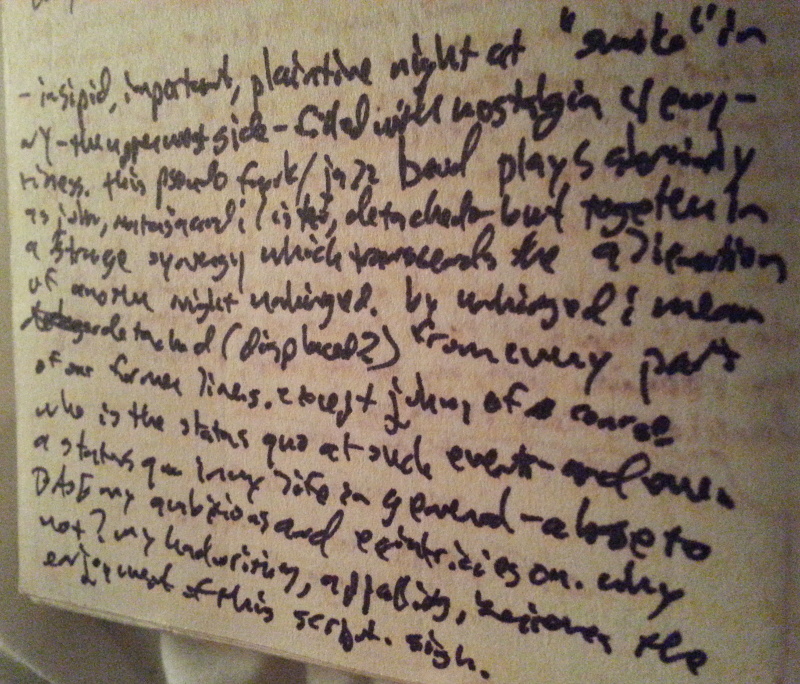 - insipid, important, plaintive night at "smoke" in
NY - the upper west side - filled with nostalgia & empt-
iness. this pseudo funk/jazz band plays
as john, and i listen, detached - but together in
a strange synergy which transcends the alienation
of another night unhinged. by unhinged i mean
detached (displaced?) from every part
of our former lives. except johny of course
who is the status quo at such events - and even
a status quo in my life in general - a base to
BASE my ambitions and on. why
not? my handwriting, appalling, removes the
enjoyment of this script. sigh.